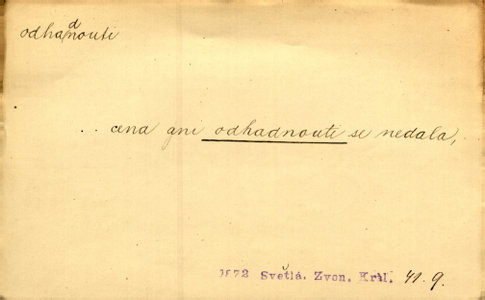 odhadnouti
.. cena ani odhadnouti se nedala,
1872 Světlá. Zvon. Král. 41.9.